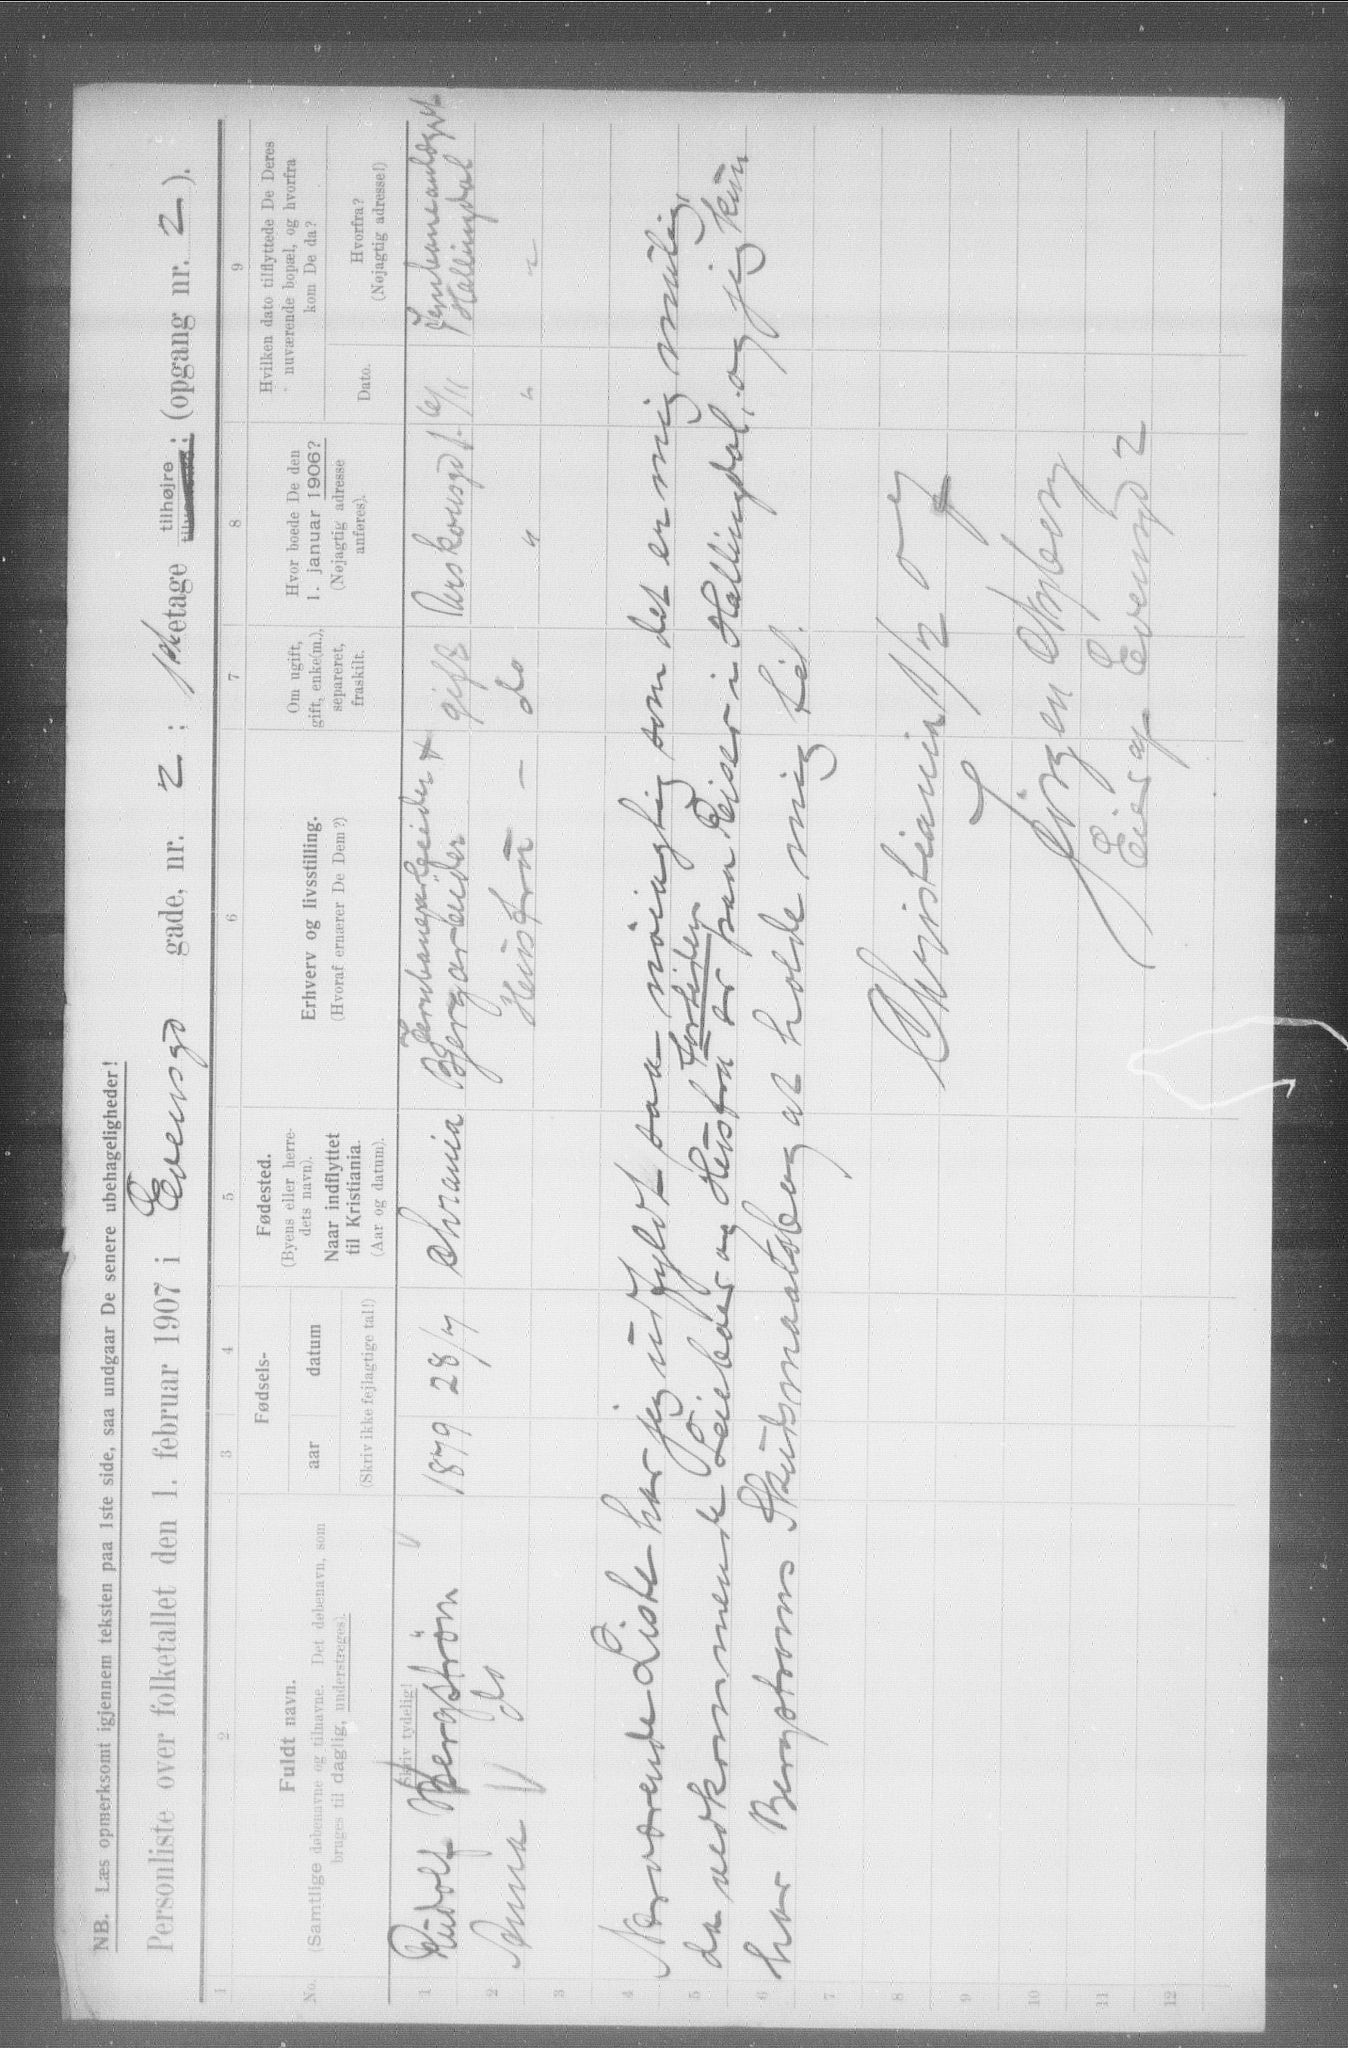 NB. Læs opmerksomt igjennem teksten paa 1ste side, saa undgaar De senere ubehageligheder!
Personliste over folketallet den 1. februar 1907 i Evensgd gade, nr. 2 ; 1ste etage tilhøjre ; (opgang nr. 2 ).
1 2 3 4 5 6 7 8 9
No. Fuldt navn. (Samtlige døbenavne og tilnavne. Det døbenavn, som bruges til daglig, understreges). Skriv tydelig!
Fødsels- aar datum (Skriv ikke fejlagtige tal!)
Fødested. (Byens eller herredets navn). Naar indflyttet til Kristiania. (Aar og datum).
Erhverv og livsstilling. (Hvoraf ernærer De Dem?)
Om ugift, gift, enke(m.), separeret, fraskilt.
Hvor boede De den 1. januar 1906? (Nøjagtig adresse anføres).
Hvilken dato tilflyttede De Deres nuværende bopæl, og hvorfra kom De da?
Dato. Hvorfra? (Nøjagtig adresse!)
1 Rudolf Bergström 1879 28/7 Chrania Jernbanearbeider & Bjergarbeider gift 6/11 Jernbaneanlægget Hallingdal
2 Anna do Husfru — do " " "
3
4 Nærværende Liste har jeg udfyldt saa nøiagtig som det er mig mulig,
5 da vedkommende Leieboer og Husfru Forhiden er paa Reiser i Hallingdal, og jeg kun
6 har Bergstroms Skudsmaalsbog at holde mig til.
7
8 Christiania 1/2 07
9
10 Jørgen
11 Eier af Evensgd 2
12